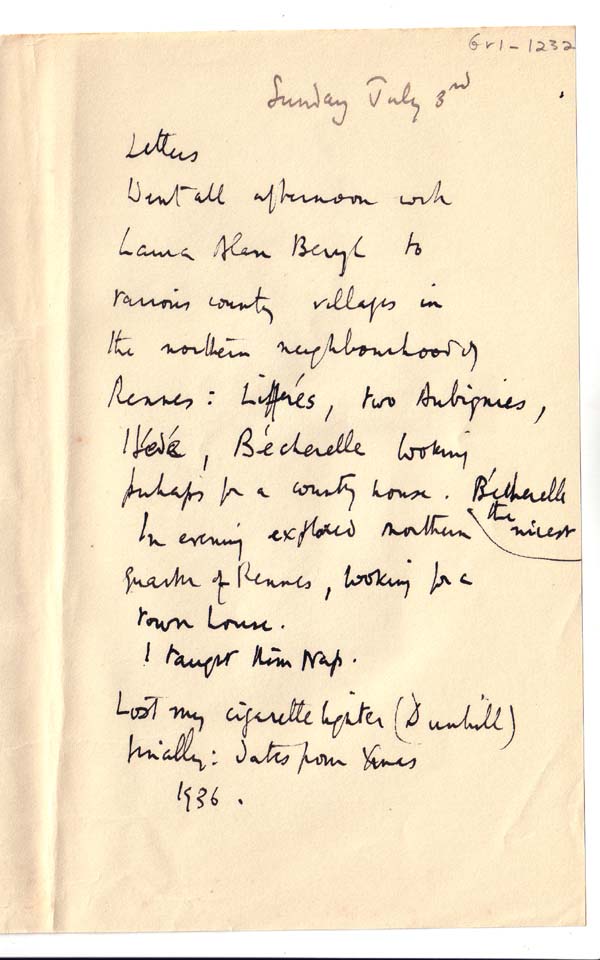 Gr1-1232
Sunday July 3rd
Letters
Went all afternoon with
Laura Alan Beryl to
various county villages in
the northern neighbourhood of
Rennes: Liffrés, two Aubignies,
Hédé, Bécherelle looking
perhaps for a county house. Bécherelle
the nicest
In evening explored northern
quarter of Rennes, looking for a
town house.
I taught them Nap.
Lost my cigarette lighter (Dunhill)
finally: dates from Xmas
1936.